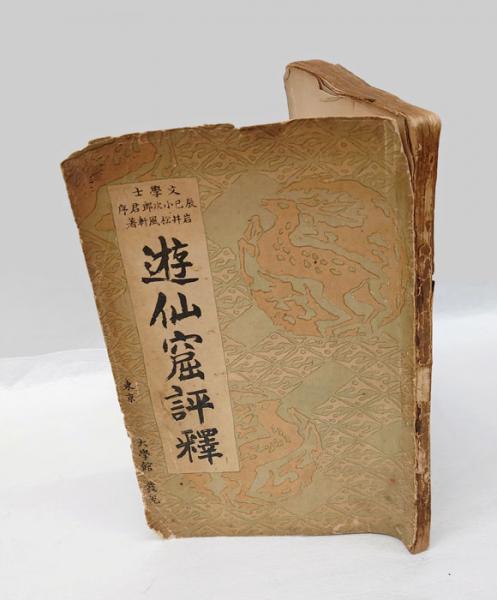 文學士
辰巳小次郎君序
岩井松風軒著
遊仙窟評釋
東京 大學館 發兌